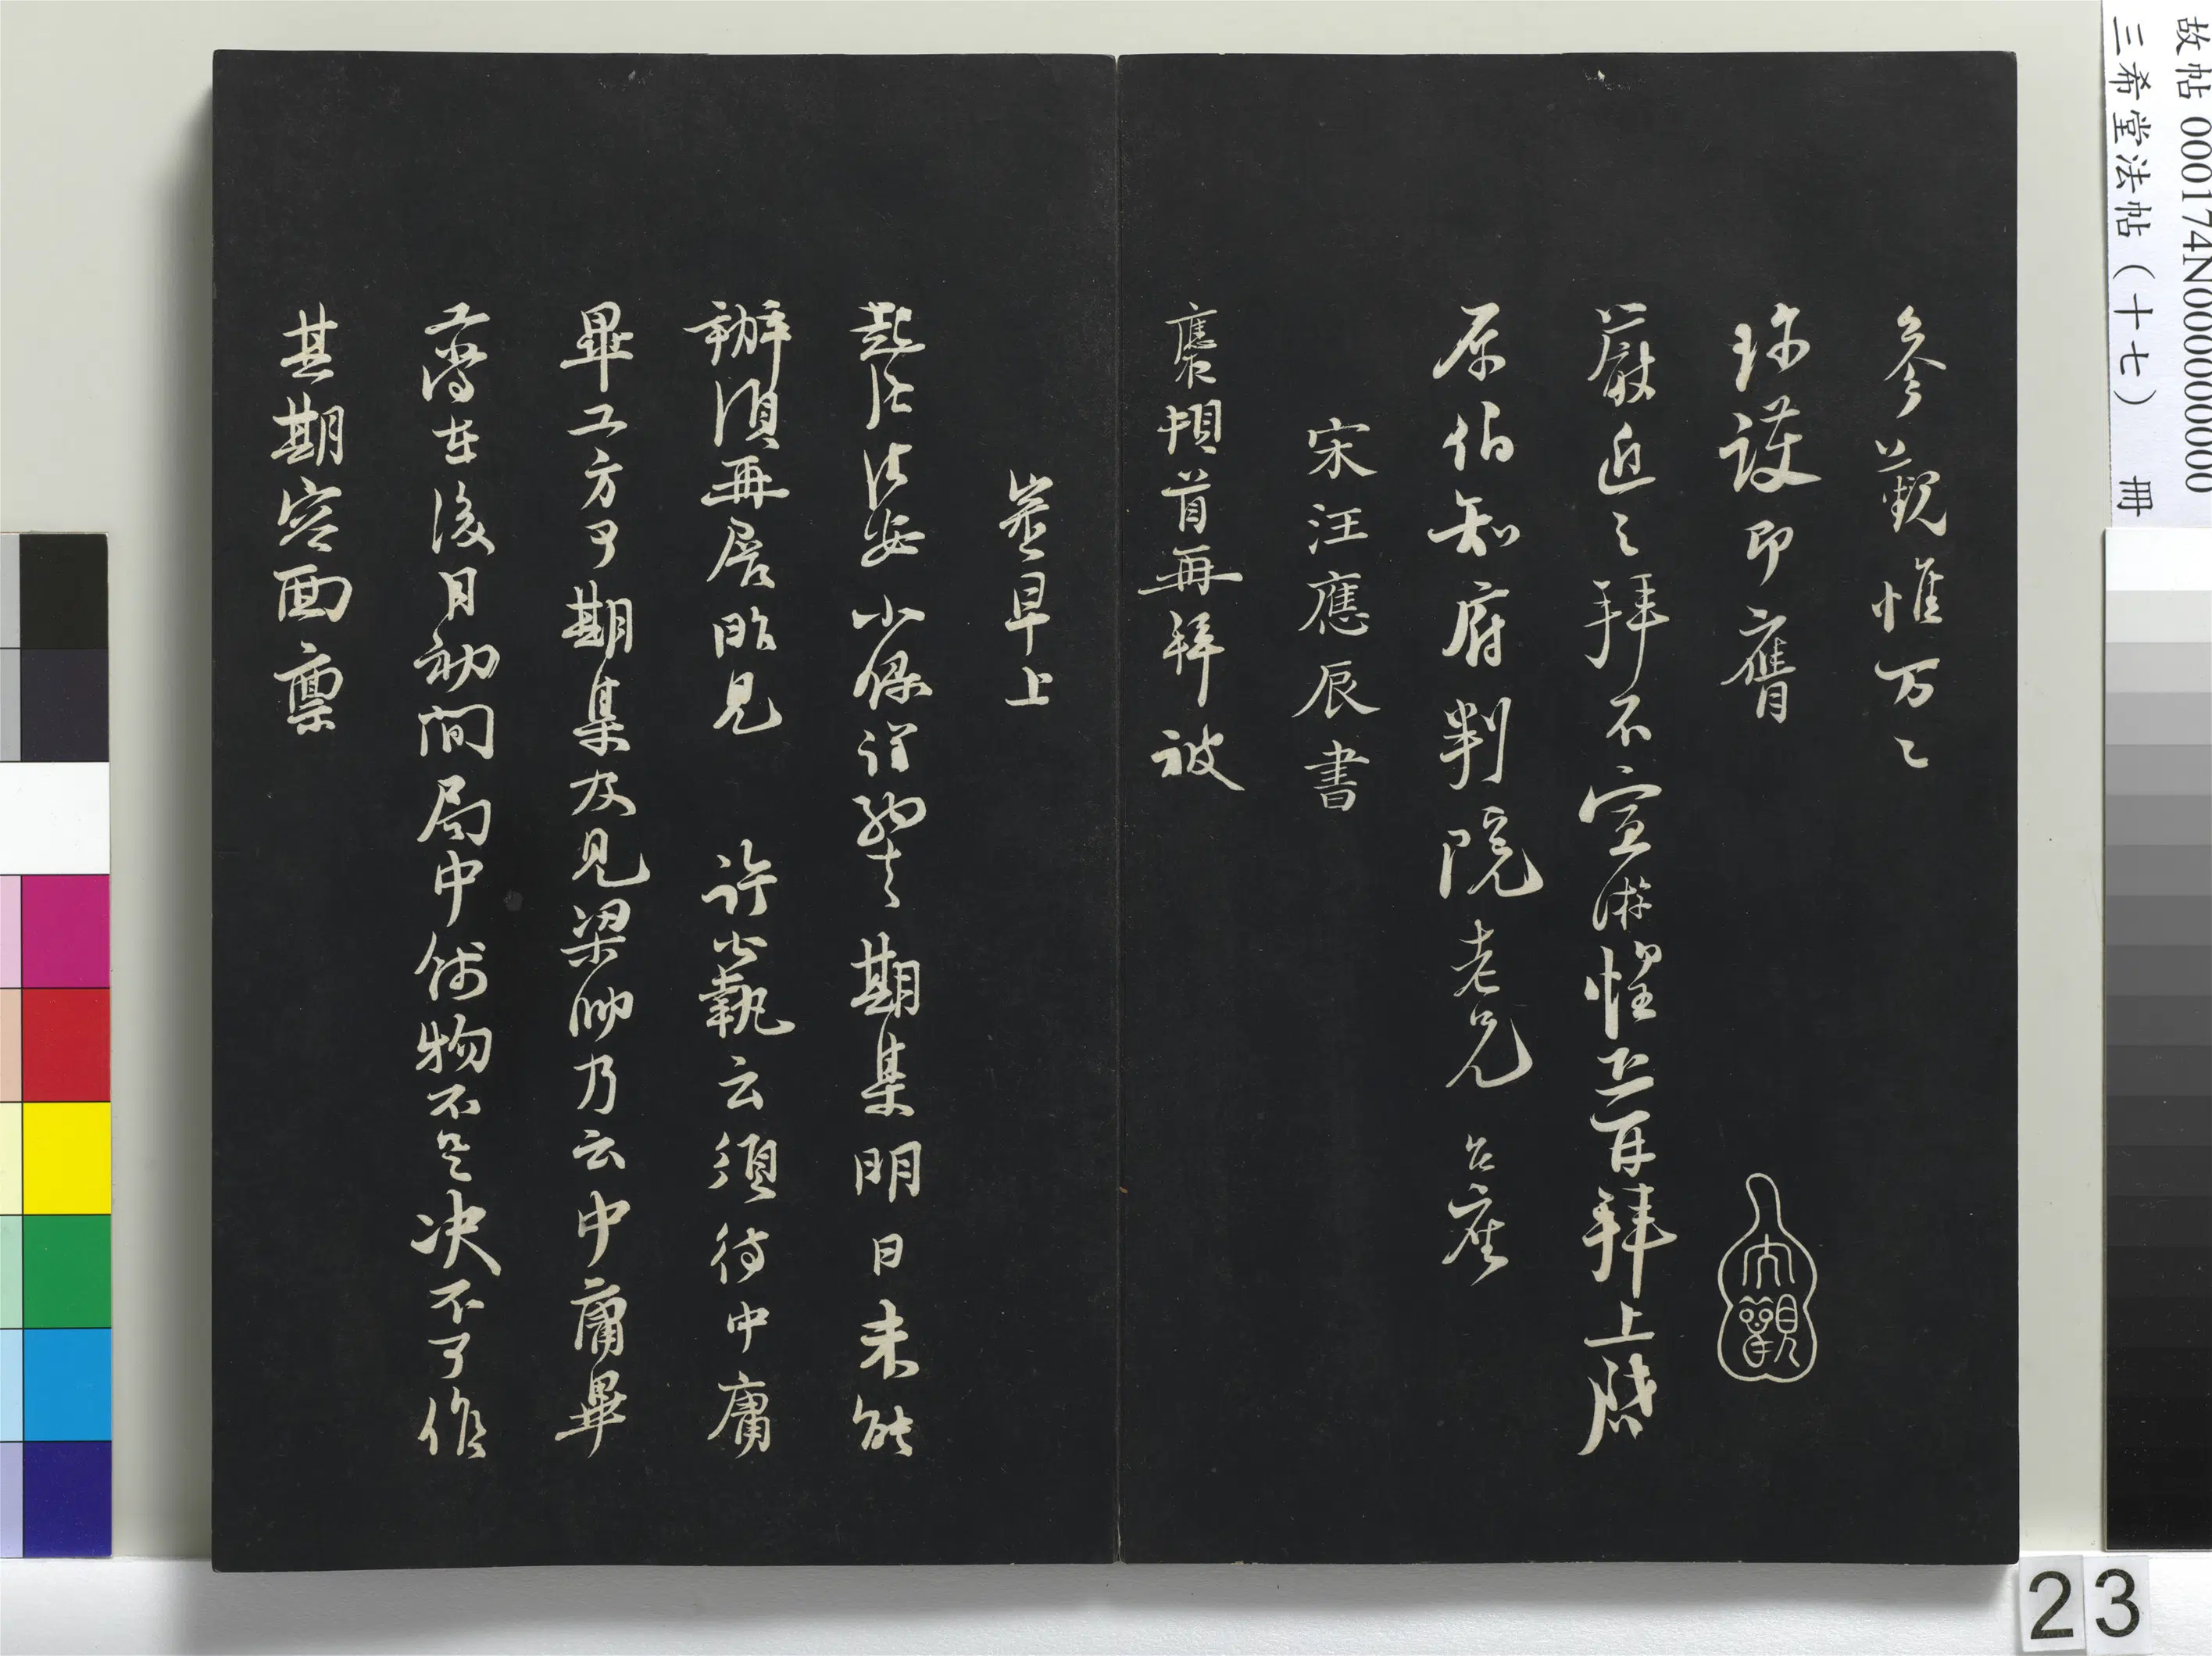 故帖 000174N000000000
三希堂法帖（十七） 冊
參觀惟万〻
珍護即膺
嚴近〻拜不宣游惶恐百拜上啓
原伯知府判院老兄 台座
大觀
宋汪應辰書
應辰頓首再拜被
答早上
起居法安少保得契丈期集明日未能
辦須再展所見 許公執云須待中庸
畢工方可期集及見梁帥乃云中庸畢
工當在後月初間局中錢物不足決不可作
其期容面稟
23